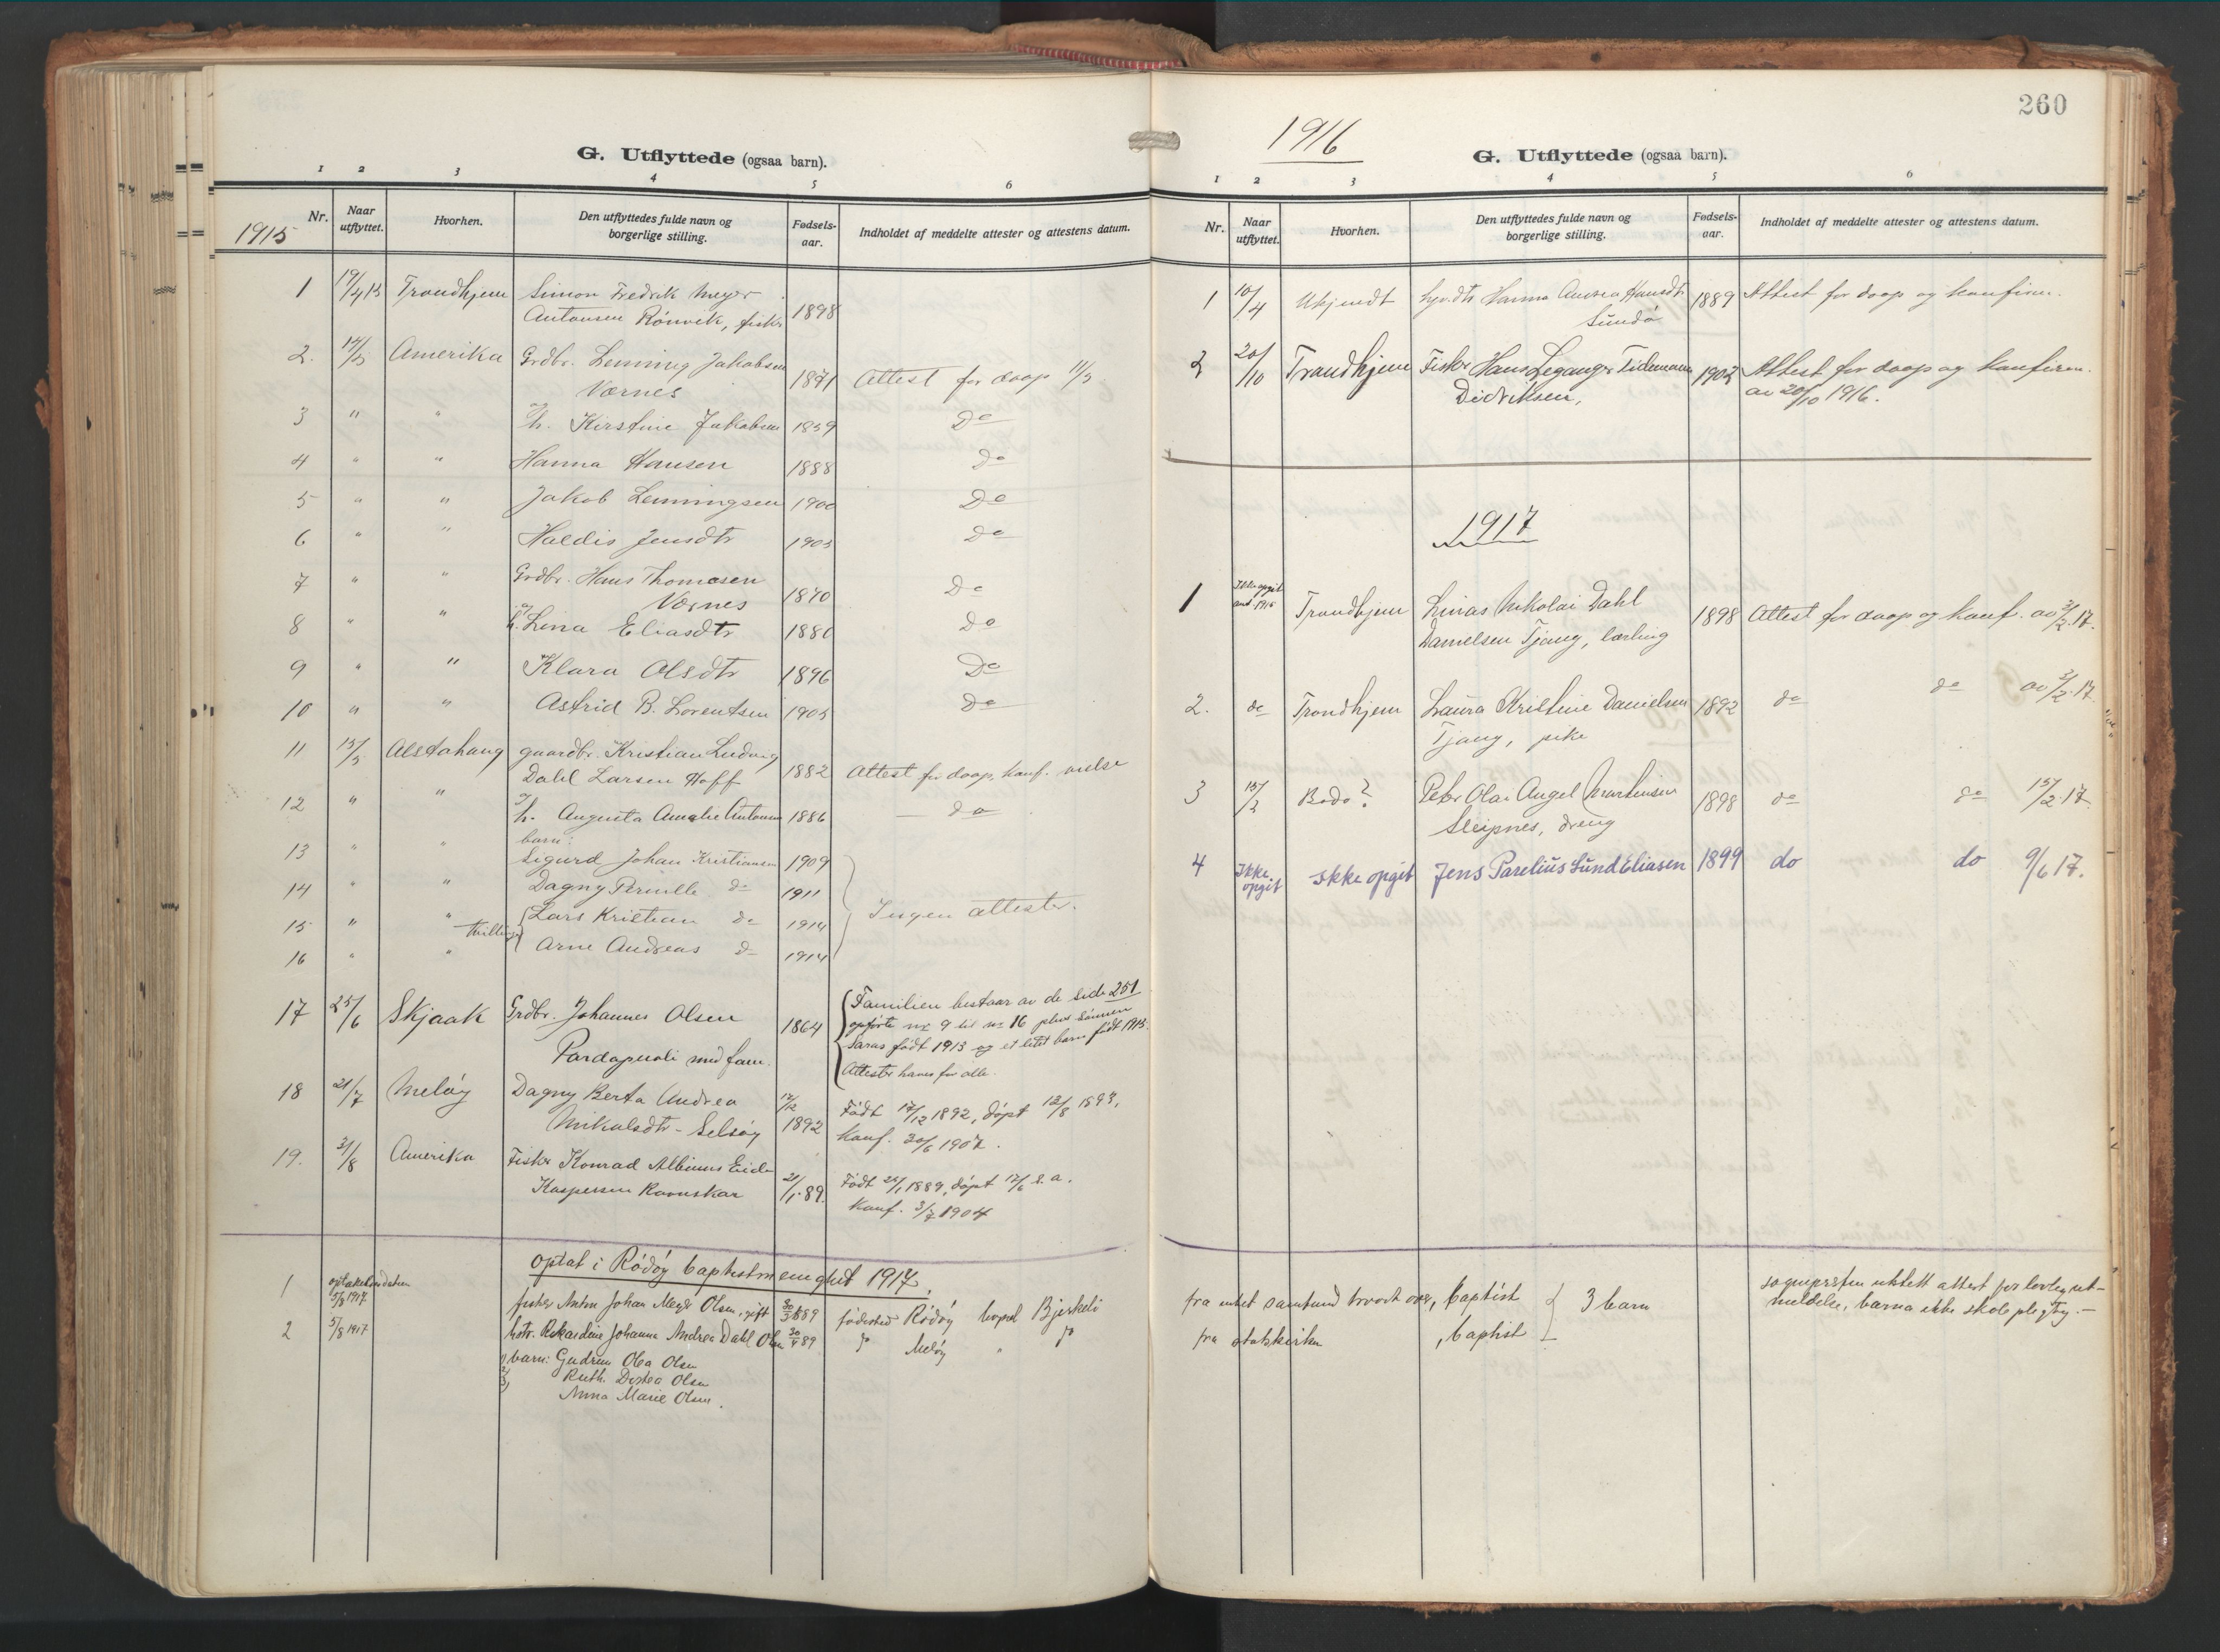 G. Utflyttede (ogsaa barn).
1 2 3 4 5 6
1915 Nr. Naar utflyttet. Hvorhen. Den utflyttedes fulde navn og borgerlige stilling. Fødsels-aar. Indholdet af meddelte attester og attestens datum.
1 19/4 15 Trondhjem Simon Fredrik Meyer
Antonsen Rönvik, fisker 1898
2. 14/5 Amerika Grdbr. Lenning Jakobsen
Værnes 1871 Attest for daap 11/5
3 " " h. Kirstine Jakobsen 1859 Do
4 " " Hanna Hansen 1888 do
5 " " Jakob Lenningsen 1900 Do
6 " " Haldis Jensdtr 1905 do
7 " " Grdbr. Hans Thomasen
Værnes 1870 Do
8 " " h. Lina Eliasdtr 1880 do
9 " " Klara Olsdtr 1896 Do
10 " " Astrid B. Lorentsen 1905 do
11 15/5 Alstahaug gaardbr. Kristian Ludvig
Dahl Larsen Hoff 1882 Attest for daap, konf. vielse
12 " " h. Augusta Amalie Antonsen 1886 — do —
barn:
13 " " Sigurd Johan Kristiansen 1909
14 " " Dagny Pernille do 1911
15 " " Lars Kristian do 1914 Ingen attester.
Tvillinger
16 " " Arne Andreas do 1914
17 25/6 Skjaak Grdbr. Johannes Olsen 1864
Pardapuoli med fam.
Familien bestaar av de side 251
opförte nr 9 til nr 16 plus sönnen
Saras födt 1913 og et litet barn födt 1915.
Attester haves for alle.
18 21/7 Melöy Dagny Berta Andrea
Mikalsdtr - Selsöy 17/12 1892 Födt 17/12 1892, döpt 12/8 1893,
konf. 30/6 1907.
19. 31/8 Amerika Fisker Konrad Albinus Eide
Kaspersen Ravnskar 21/1 89. Födt 21/1 1889, döpt 17/6 s. a.
konf. 3/7 1904
optat i Rödöy baptistmenighet 1917.
1 optakelsesdatum
5/8 1917 fisker Anton Johan Meyer Olsen, gift 30/3 1889 födested Rödöy bopel Bjerkeli
2 5/8 1917 hstr. Rikardine Johanna Andrea Dahl Olsen 30/4 89 " Melöy " "
1) barn: Gudrun Olea Olsen
2) Ruth Dortea Olsen
3) Anna Marie Olsen.
260
1916
G. Utflyttede (ogsaa barn).
1 2 3 4 5 6
Nr. Naar utflyttet. Hvorhen. Den utflyttedes fulde navn og borgerlige stilling. Fødsels-aar. Indholdet af meddelte attester og attestens datum.
1 10/4 Ukjendt Hanna Andrea Hansdtr
Sundö 1889 Attest for daap og konfirm.
2 20/10 Trondhjem Fisker Hans Leganger Tidemann
Didriksen, 1902 Attest for daap og konfirm.
av 20/10 1916.
1917
1 Ikke opgit
ant. 1916 Trondhjem Linas Nikolai Dahl
Danielsen Tjong, lærling 1898 Attest for daap og konf. av 3/2.17.
2. do Trondhjem Laura Kristine Danielsen
Tjong, pike 1892 do do av 3/2.17.
3 15/2 Bodö? Peter Olai Angel Martinsen
Sleipnes, dreng 1898 do do 15/2.17.
4 Ikke
opgit Ikke opgit Jens Parelius Sund Eliasen 1899 do do 9/6 17.
fra intet samfund hvort over, baptist
fra statskirken , baptist 3 barn
sogneprsten utstett attest for lovleg ut-
meldelse, barna ikke skolepligtig. —